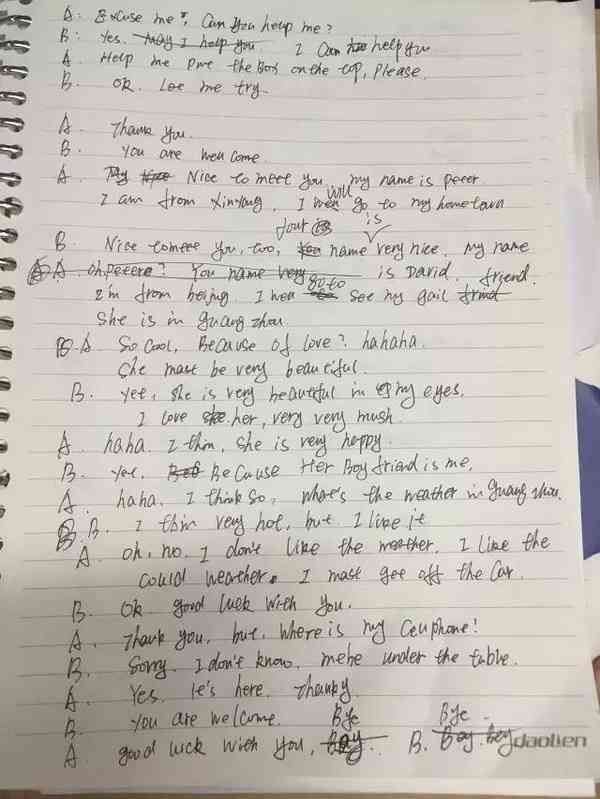 A: Excuse me, Can you help me?
B: Yes. May I help you I can help you
A. Help me put the box on the top, please.
B. OK. Let me try.
A. Thank you.
B. You are well come.
A. My Nice Nice to meet you, my name is peter.
will
I am from Xinxiang. I went go to my hometown
your is
B. Nice to meet you, too, name very nice. My name
A. oh, peter? You name very is David. friend.
go to
I'm from beijing. I wen see my gail frind
She is in guang zhou
B. A. So cool, Because of love? hahaha.
She mast be very beautiful.
B. yet, she is very beautiful in my eyes.
I love she her, very very mush
A. haha. I thin, She is very happy.
B. yet. Be Because Her Boyfriend is me.
A. haha. I think so, what's the weather in guang zhou.
B. B. I thin very hot, but I like it
A. oh, no. I don't like the weather. I like the
could weather. I mast get off the car.
B. Ok good luck with you.
A. Thank you, but, where is my ceuphone!
B. Sorry. I don't know. mebe under the table.
A. Yes. it's here. Thanky
B. You are welcome. Bye Bye
A. good luck with you, Boy.. B. Boy. bey daolien